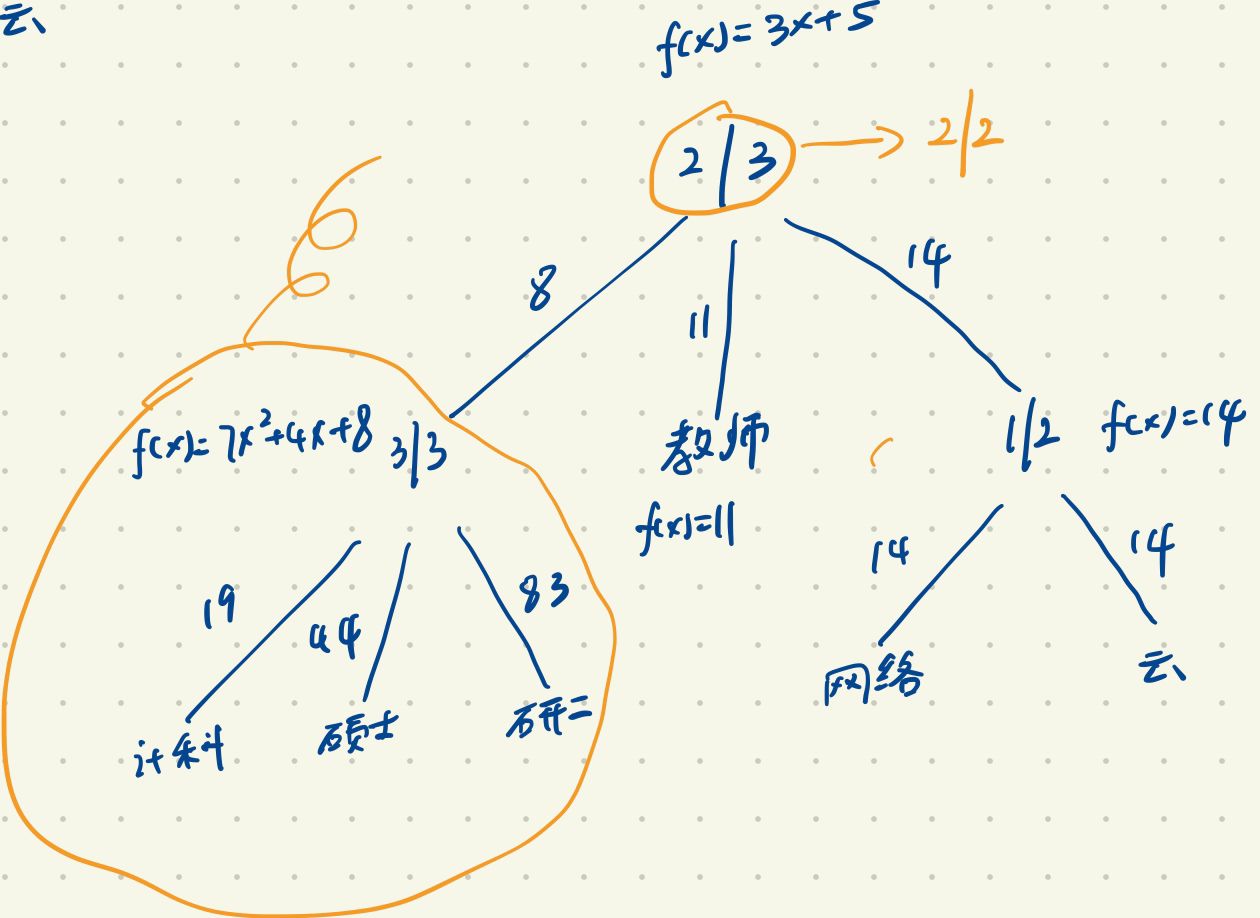 云
f(x)=3x+5
2|3
2|2
8
11
14
f(x)=7x²+4x+8
3|3
教师
1|2
f(x)=14
f(x)=11
19
44
83
14
14
计科
硕士
研二
网络
云